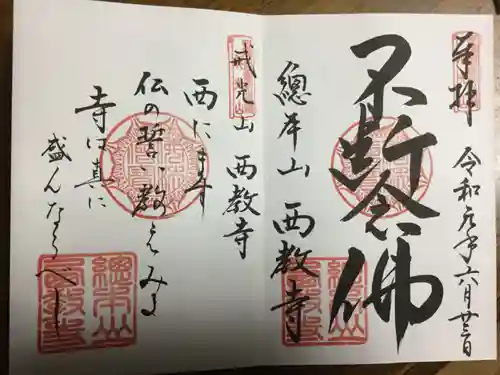 奉拝
令和元年六月廿三日
不断念佛
總本山 西教寺
戒光山 西教寺
西にます
仏の誓い教へみる
寺は真に
盛んなるべし